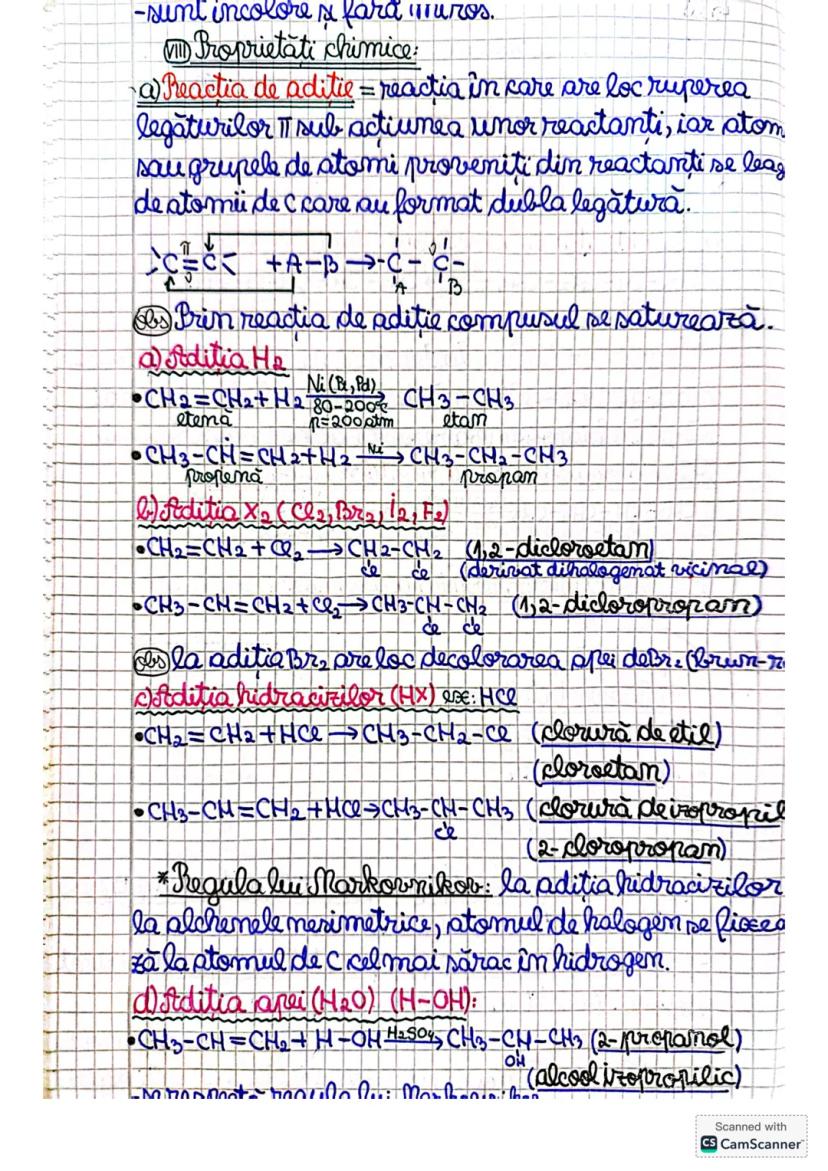 -sunt incolore și fără miros.
VIII Proprietăți chimice:
a) Reacția de adiție = reacția în care are loc ruperea
legăturilor π sub acțiunea unor reactanți, iar atom
sau grupele de atomi proveniți din reactanți se leag
de atomii de C care au format dubla legătură.
π
>C=C< +A-B→-C-C-
σ
A B
obs Prin reacția de adiție compusul se saturează.
a) Adiția H2
•CH2=CH2+H2 Ni(Pt,Pd) 80-200°C p=200atm → CH3-CH3
etenă etan
•CH3-CH=CH2+H2 Ni → CH3-CH2-CH3
propenă propan
b) Adiția X2 (Cl2, Br2, I2, F2)
•CH2=CH2+Cl2→CH2-CH2 (1,2-dicloroetan)
Cl Cl (derivat dihalogenat vicinal)
•CH3-CH=CH2+Cl2→CH3-CH-CH2 (1,2-dicloropropan)
Cl Cl
obs la adiția Br2 are loc decolorarea apei de Br2 (brun-r
c) Adiția hidracizilor (HX) ex: HCl
•CH2=CH2+HCl→CH3-CH2-Cl (clorură de etil)
(cloroetan)
•CH3-CH=CH2+HCl→CH3-CH-CH3 (clorură de izopropil
Cl
(2-cloropropan)
*Regula lui Markovnikov: la adiția hidracizilor
la alchenele nesimetrice, atomul de halogen se fixea
ză la atomul de C cel mai sărac în hidrogen.
d) Adiția apei (H2O) (H-OH):
•CH3-CH=CH2+H-OH H2SO4 → CH3-CH-CH3 (2-propanol)
OH
(alcool izopropilic)
Scanned with
CS CamScanner